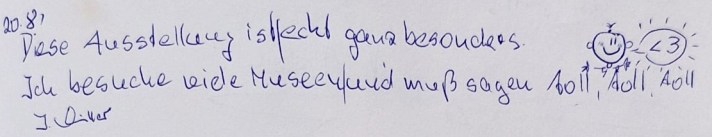 20.8'
Diese Ausstellung ist echt ganz besonders.
Ich besuche viele Museen und muß sagen toll, toll, toll
<3